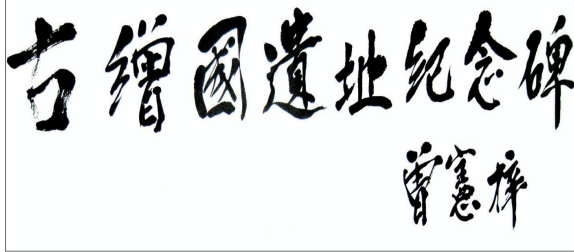 古繒國遺址紀念碑
曾憲梓